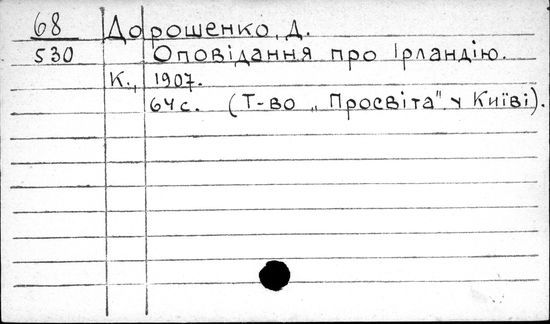 68 Дорошенко, Д.
530 Оповідання про Ірландію.
К., 1907.
64с. (Т-во „Просвіта" у Київі).